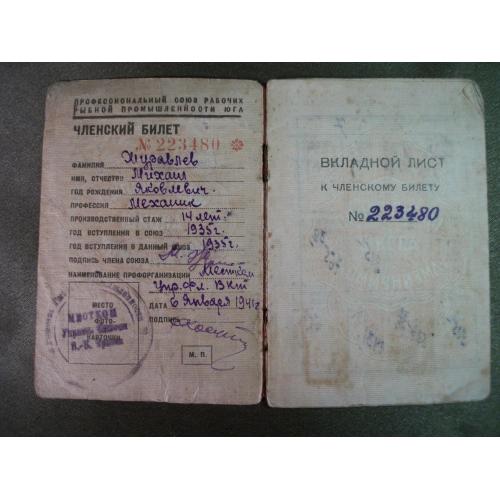 ПРОФЕССИОНАЛЬНЫЙ СОЮЗ РАБОЧИХ
РЫБНОЙ ПРОМЫШЛЕННОСТИ ЮГА
ЧЛЕНСКИЙ БИЛЕТ
№ 223480
ФАМИЛИЯ Журавлев
ИМЯ, ОТЧЕСТВО Михаил
ГОД РОЖДЕНИЯ Яковлевич
ПРОФЕССИЯ Механик
ПРОИЗВОДСТВЕННЫЙ СТАЖ 14 лет
ГОД ВСТУПЛЕНИЯ В СОЮЗ 1935г.
ГОД ВСТУПЛЕНИЯ В ДАННЫЙ СОЮЗ 1935г.
ПОДПИСЬ ЧЛЕНА СОЮЗА
НАИМЕНОВАНИЕ ПРОФОРГАНИЗАЦИИ Местком
Упр. фл.
ДАТА 6 января
ПОДПИСЬ
МЕСТО
ФОТО-
КАРТОЧКИ
МЕСТКОМ
М. П.
ВКЛАДНОЙ ЛИСТ
К ЧЛЕНСКОМУ БИЛЕТУ
№ 223480